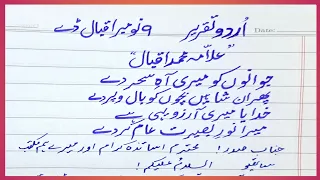 اُردو تقریر ۹ نومبر اقبال ڈے Date:
"علامہ محمد اقبال"
جوانوں کو میری آہِ سحر دے
پھر ان شاہیں بچوں کو بال و پر دے
خدایا میری آرزو یہی ہے
میرا نورِ بصیرت عام کر دے
جناب صدر! محترم اساتذہ کرام اور میرے ہم مکتب
ساتھیو السلام علیکم!